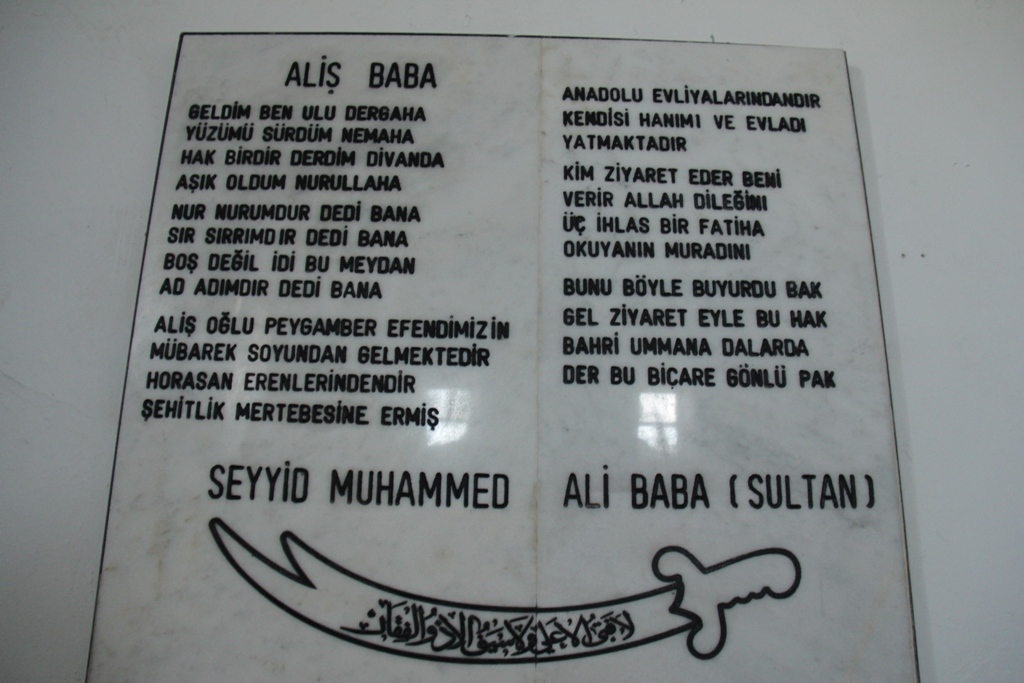 ALİŞ BABA
GELDİM BEN ULU DERGAHA
YÜZÜMÜ SÜRDÜM NEMAHA
HAK BİRDİR DERDİM DİVANDA
AŞIK OLDUM NURULLAHA
NUR NURUMDUR DEDİ BANA
SIR SIRRIMDIR DEDİ BANA
BOŞ DEĞİL İDİ BU MEYDAN
AD ADIMDIR DEDİ BANA
ALİŞ OĞLU PEYGAMBER EFENDİMİZİN
MÜBAREK SOYUNDAN GELMEKTEDİR
HORASAN ERENLERİNDENDİR
ŞEHİTLİK MERTEBESİNE ERMİŞ
ANADOLU EVLİYALARINDANDIR
KENDİSİ HANIMI VE EVLADI
YATMAKTADIR
KİM ZİYARET EDER BENİ
VERİR ALLAH DİLEĞİNİ
ÜÇ İHLAS BİR FATİHA
OKUYANIN MURADINI
BUNU BÖYLE BUYURDU BAK
GEL ZİYARET EYLE BU HAK
BAHRİ UMMANA DALARDA
DER BU BİÇARE GÖNLÜ PAK
SEYYİD MUHAMMED ALİ BABA (SULTAN)
لا فتى الا على ولا سيف الا ذو الفقار